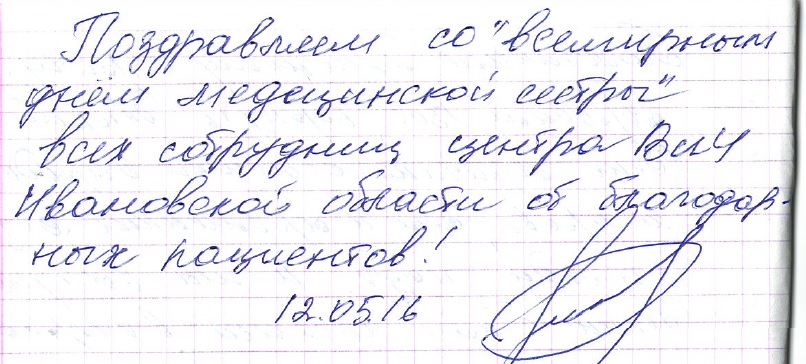 Поздравляем со "всемирным
днём медицинской сестры"
всех сотрудниц центра ВмЧ
Ивановской области от благодар-
ных пациентов!
12.05.16